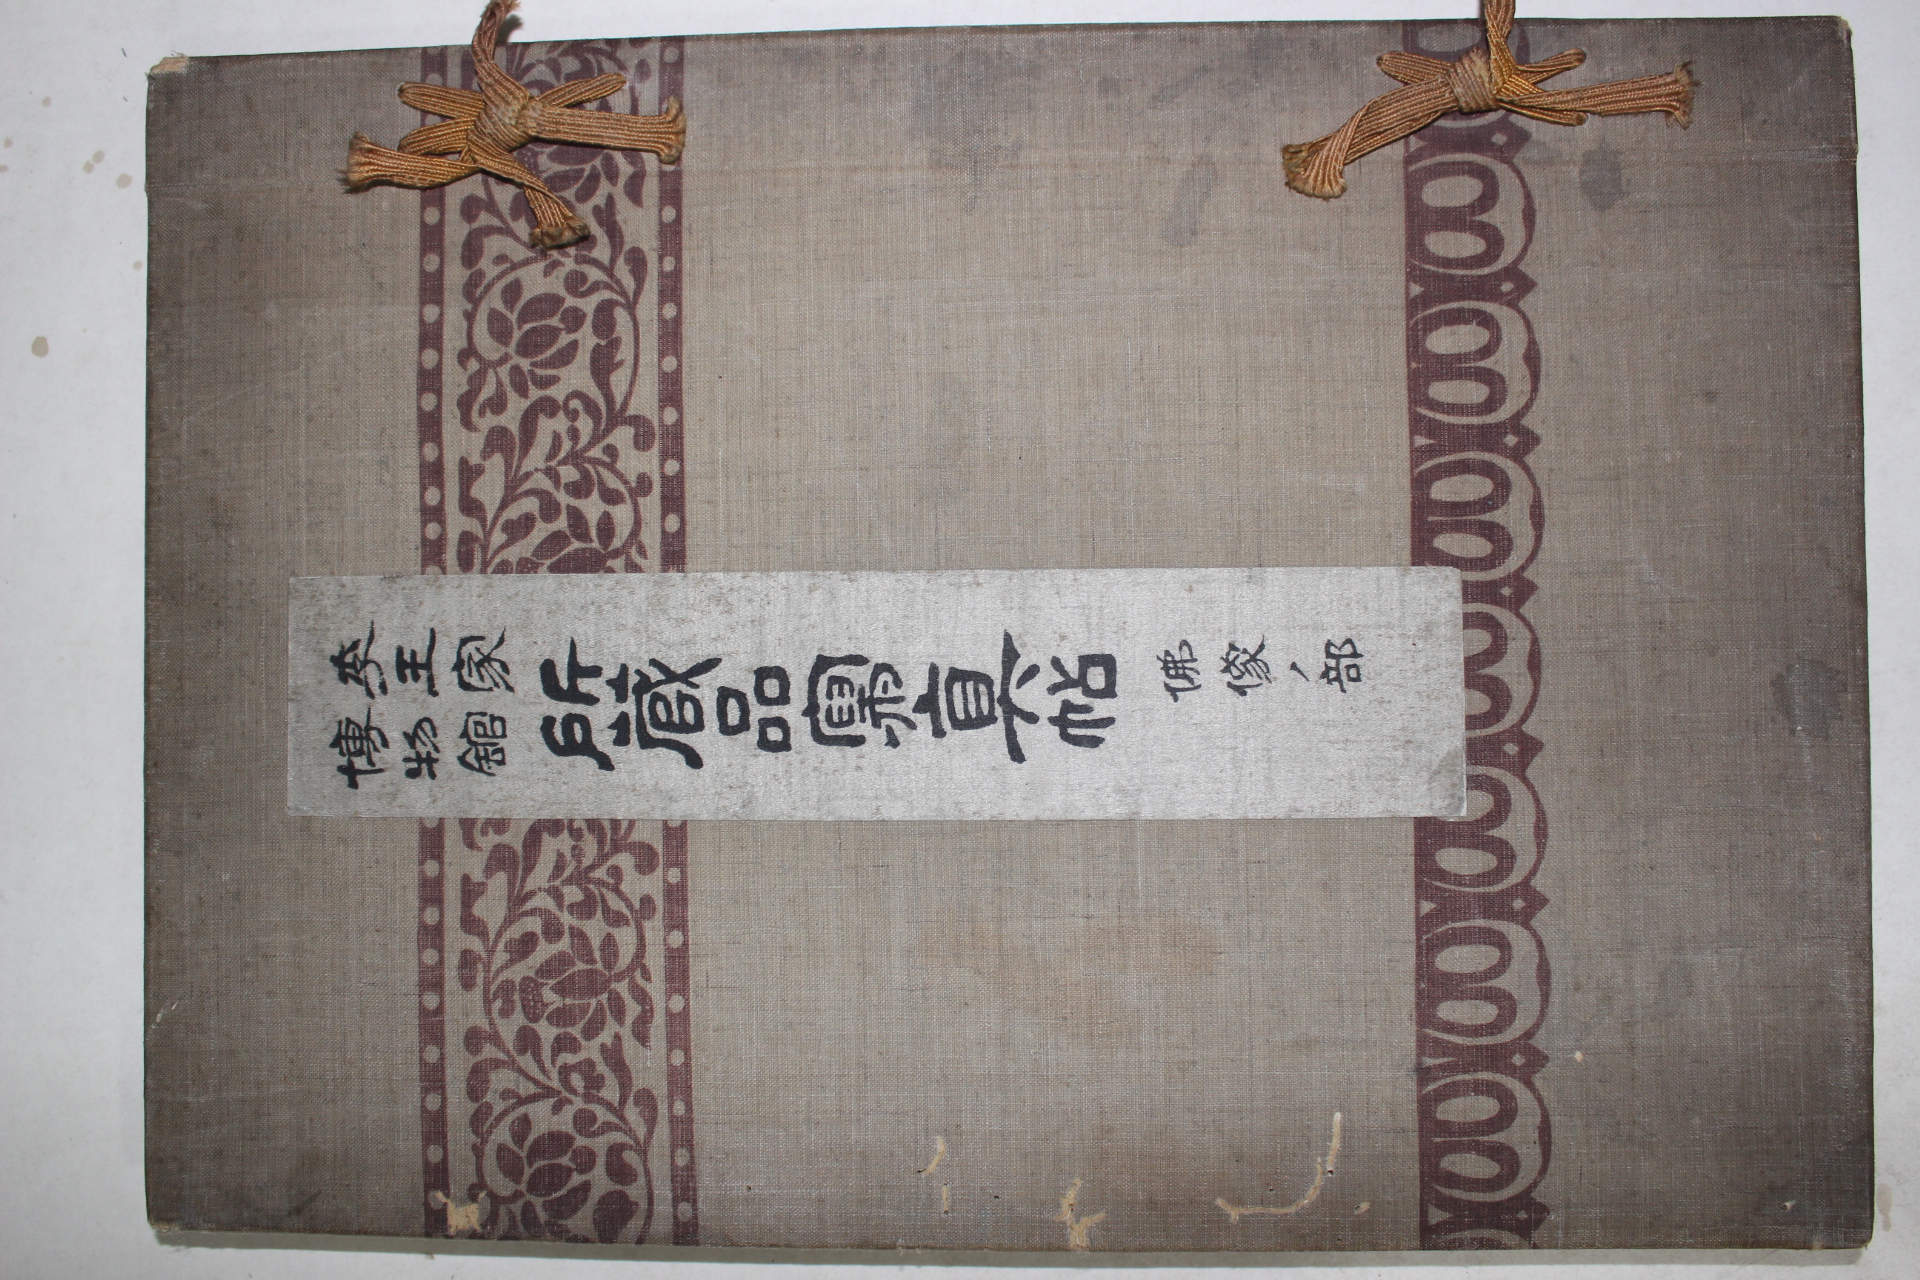 李王家
博物館
所藏品寫眞帖
佛像ノ部